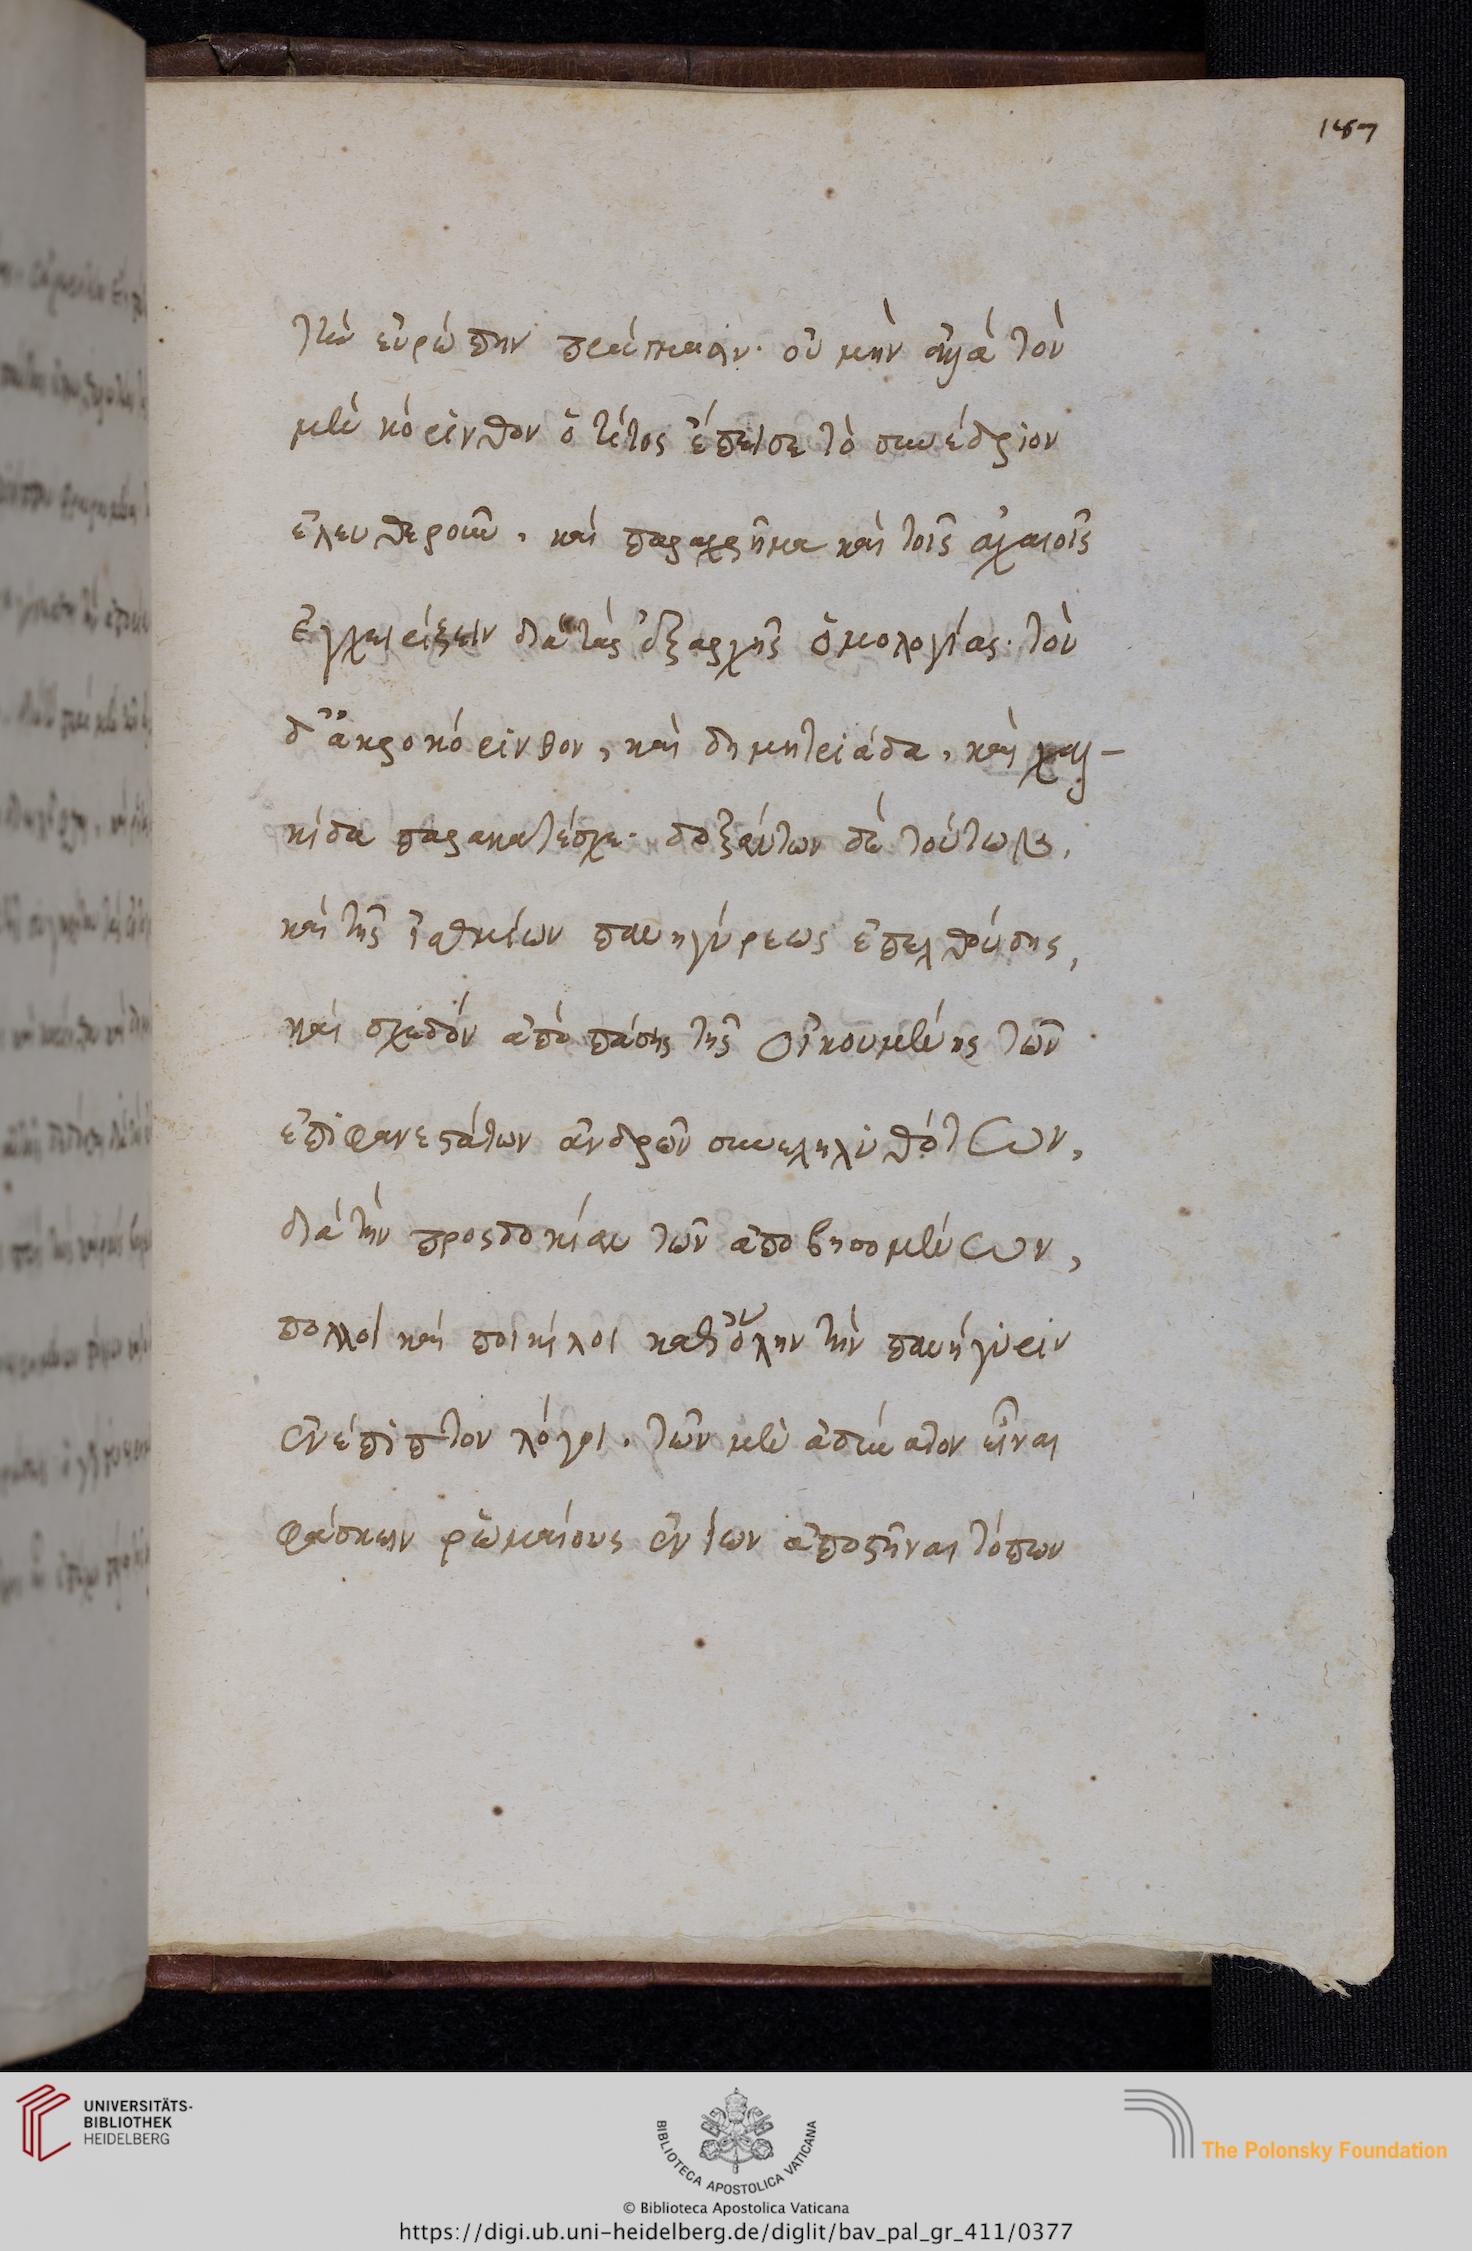 187
τὴν εὐρώπην πράγμασιν. οὐ μὴν ἀλλὰ τὸν
μὲν κόρινθον ὁ τίτος ἔπεισε τὸ συνέδριον
ἐλευθεροῦν, καὶ παραχρῆμα καὶ τοῖς ἀχαιοῖς
ἐγχειρίζειν διὰ τὰς ἐξαρχῆς ὁμολογίας. τὸν
δ' ἀκροκόρινθον, καὶ δημητριάδα, καὶ χαλ-
κίδα παρακατέσχε. δοξάντων δὲ τούτων,
καὶ τῆς ἰσθμίων πανηγύρεως ἐπελθούσης,
καὶ σχεδὸν ἀπὸ πάσης τῆς οἰκουμένης τῶν
ἐπιφανεστάτων ἀνδρῶν συνεληλυθότων,
διὰ τὴν προσδοκίαν τῶν ἀποβησομένων,
πολλοὶ καὶ ποικίλοι καθ' ὅλην τὴν πανήγυριν
ἐνέπιπτον λόγοι. τῶν μὲν ἀδύνατον εἶναι
φάσκειν ῥωμαίους ἐνίων ἀποστῆναι τόπων
UNIVERSITÄTS-
BIBLIOTHEK
HEIDELBERG
BIBLIOTHECA APOSTOLICA VATICANA
The Polonsky Foundation
© Biblioteca Apostolica Vaticana
https://digi.ub.uni-heidelberg.de/diglit/bav_pal_gr_411/0377